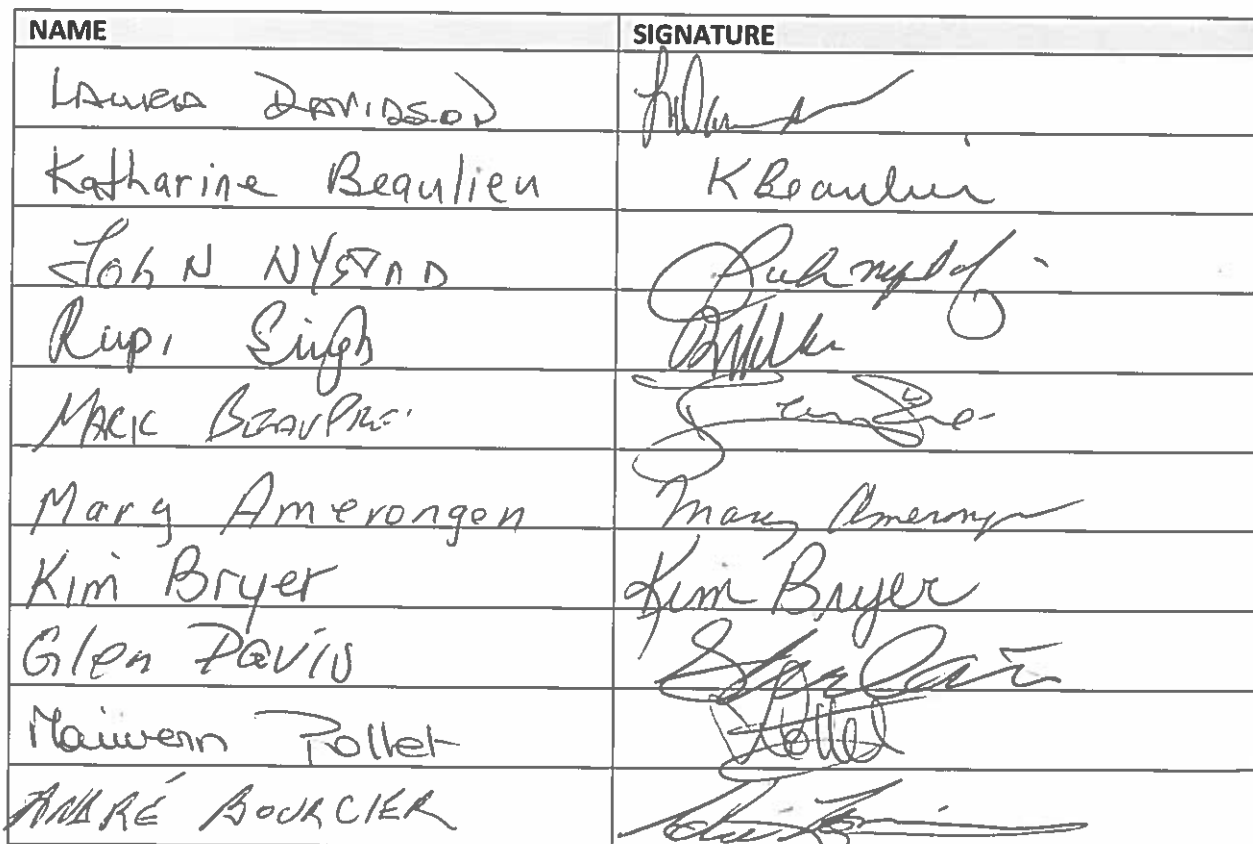 NAME SIGNATURE
LAURA DAVIDSON
Katharine Beaulieu K Beaulieu
JOHN NYSTAD
Rupi Singh
MARK BEAUPRE
Mary Amerongen Mary Amerongen
Kim Bryer Kim Bryer
Glen Davis
Maiwenn Pollet Pollet
ANDRÉ BOURCIER